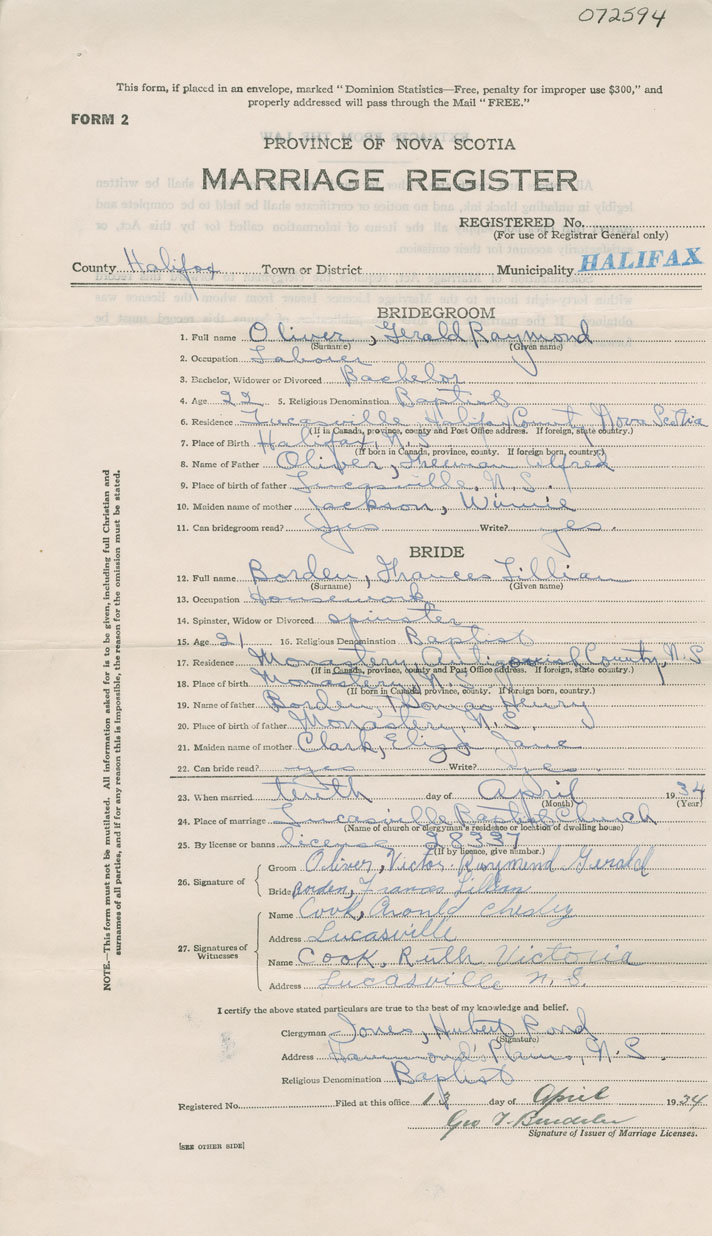 072594
This form, if placed in an envelope, marked " Dominion Statistics—Free, penalty for improper use $300," and
properly addressed will pass through the Mail " FREE."
FORM 2
PROVINCE OF NOVA SCOTIA
MARRIAGE REGISTER
REGISTERED No.
(For use of Registrar General only)
County Halifax Town or District Municipality HALIFAX
BRIDEGROOM
1. Full name Oliver, Gerald Raymond
(Surname) (Given name)
2. Occupation Labourer
3. Bachelor, Widower or Divorced Bachelor
4. Age 22 5. Religious Denomination Baptist
6. Residence Lucasville Halifax County Nova Scotia
(If in Canada, province, county and Post Office address. If foreign, state country.)
7. Place of Birth Halifax, N.S.
(If born in Canada, province, county. If foreign born, country.)
8. Name of Father Oliver, Freeman Alfred
9. Place of birth of father Lucasville, N.S.
10. Maiden name of mother Jackson, Winnie
11. Can bridegroom read? yes Write? yes.
BRIDE
12. Full name Borden, Frances Lillian
(Surname) (Given name)
13. Occupation Housework
14. Spinster, Widow or Divorced spinster
15. Age 21 16. Religious Denomination Baptist
17. Residence Monastery, Antigonish County, N.S
(If in Canada, province, county and Post Office address. If foreign, state country.)
18. Place of birth Monastery, N.S.
(If born in Canada, province, county. If foreign born, country.)
19. Name of father Borden, Thomas Henry
20. Place of birth of father Monastery, N.S.
21. Maiden name of mother Clark, Eliza Jane
22. Can bride read? yes Write? yes.
23. When married tenth day of April 1934
(Month) (Year)
24. Place of marriage Lucasville Baptist Church
(Name of church or clergyman's residence or location of dwelling house)
25. By license or banns license 28337
(If by licence, give number.)
26. Signature of
Groom Oliver, Victor Raymond Gerald
Bride Borden, Frances Lillian
27. Signatures of Witnesses
Name Cook, Arnold Chesley
Address Lucasville
Name Cook, Ruth Victoria
Address Lucasville N. S.
I certify the above stated particulars are true to the best of my knowledge and belief.
Clergyman Jones, Hubert Pond
(Signature)
Address Hammond's Plains, N.S.
Religious Denomination Baptist
Registered No. Filed at this office day of April 1934
Geo
Signature of Issuer of Marriage Licenses.
[SEE OTHER SIDE]
NOTE.—This form must not be mutilated. All information asked for is to be given, including full Christian and
surnames of all parties, and if for any reason this is impossible, the reason for the omission must be stated.